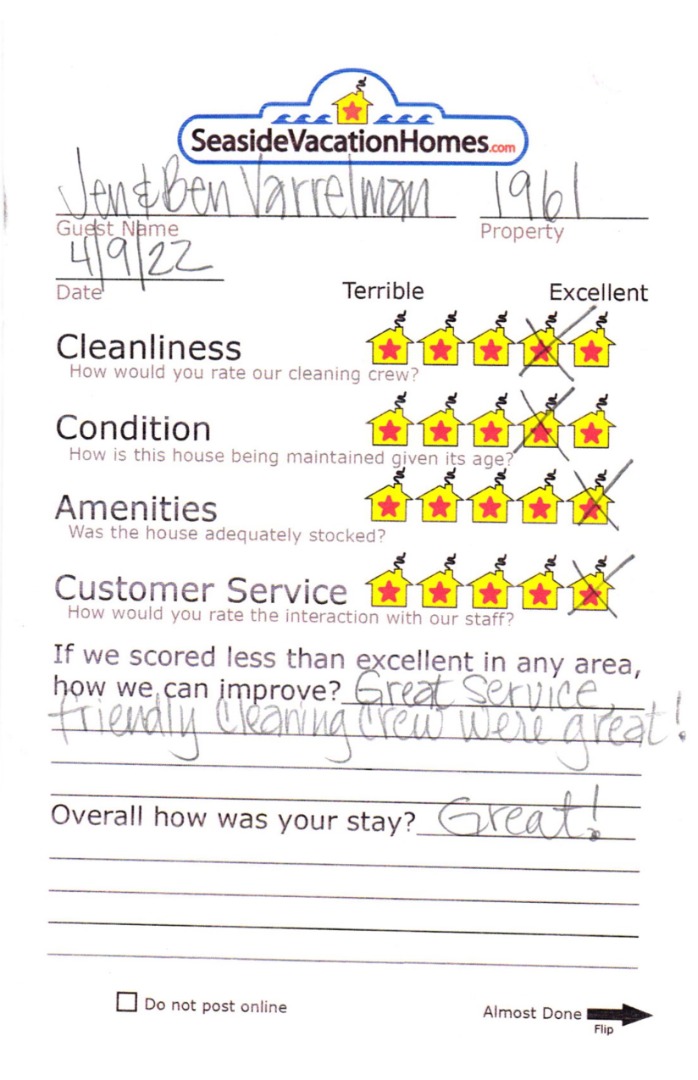 SeasideVacationHomes.com
Jen & Ben Varrelman 1961
Guest Name Property
4/9/22
Date Terrible Excellent
Cleanliness
How would you rate our cleaning crew?
Condition
How is this house being maintained given its age?
Amenities
Was the house adequately stocked?
Customer Service
How would you rate the interaction with our staff?
If we scored less than excellent in any area,
how we can improve? Great Service,
friendly Cleaning Crew were great!
Overall how was your stay? Great!
Do not post online Almost Done
Flip